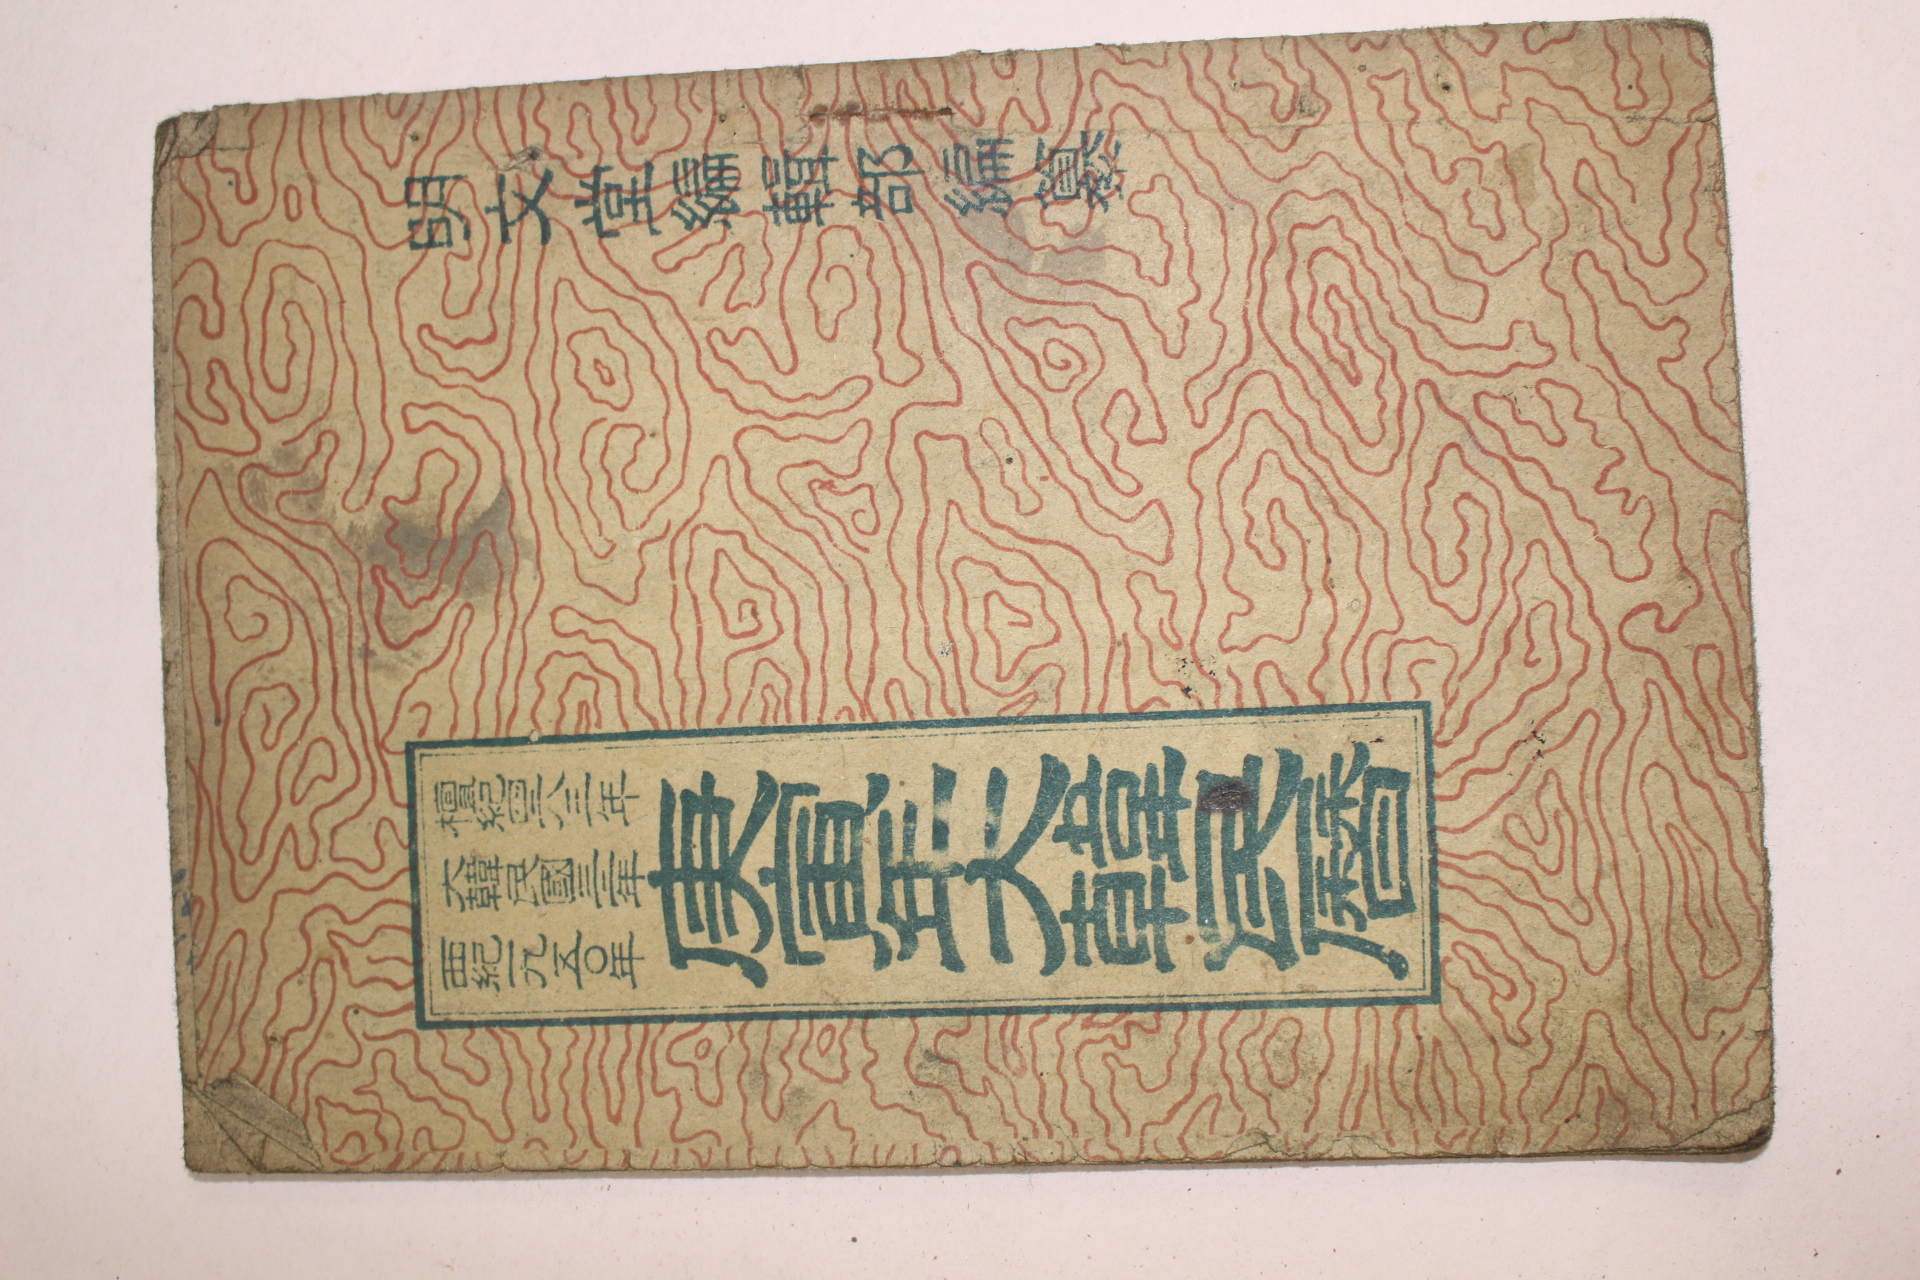 明文堂編輯部編纂
檀紀四二八三年
大韓民國三二年
西紀一九五〇年
庚寅年大韓民曆